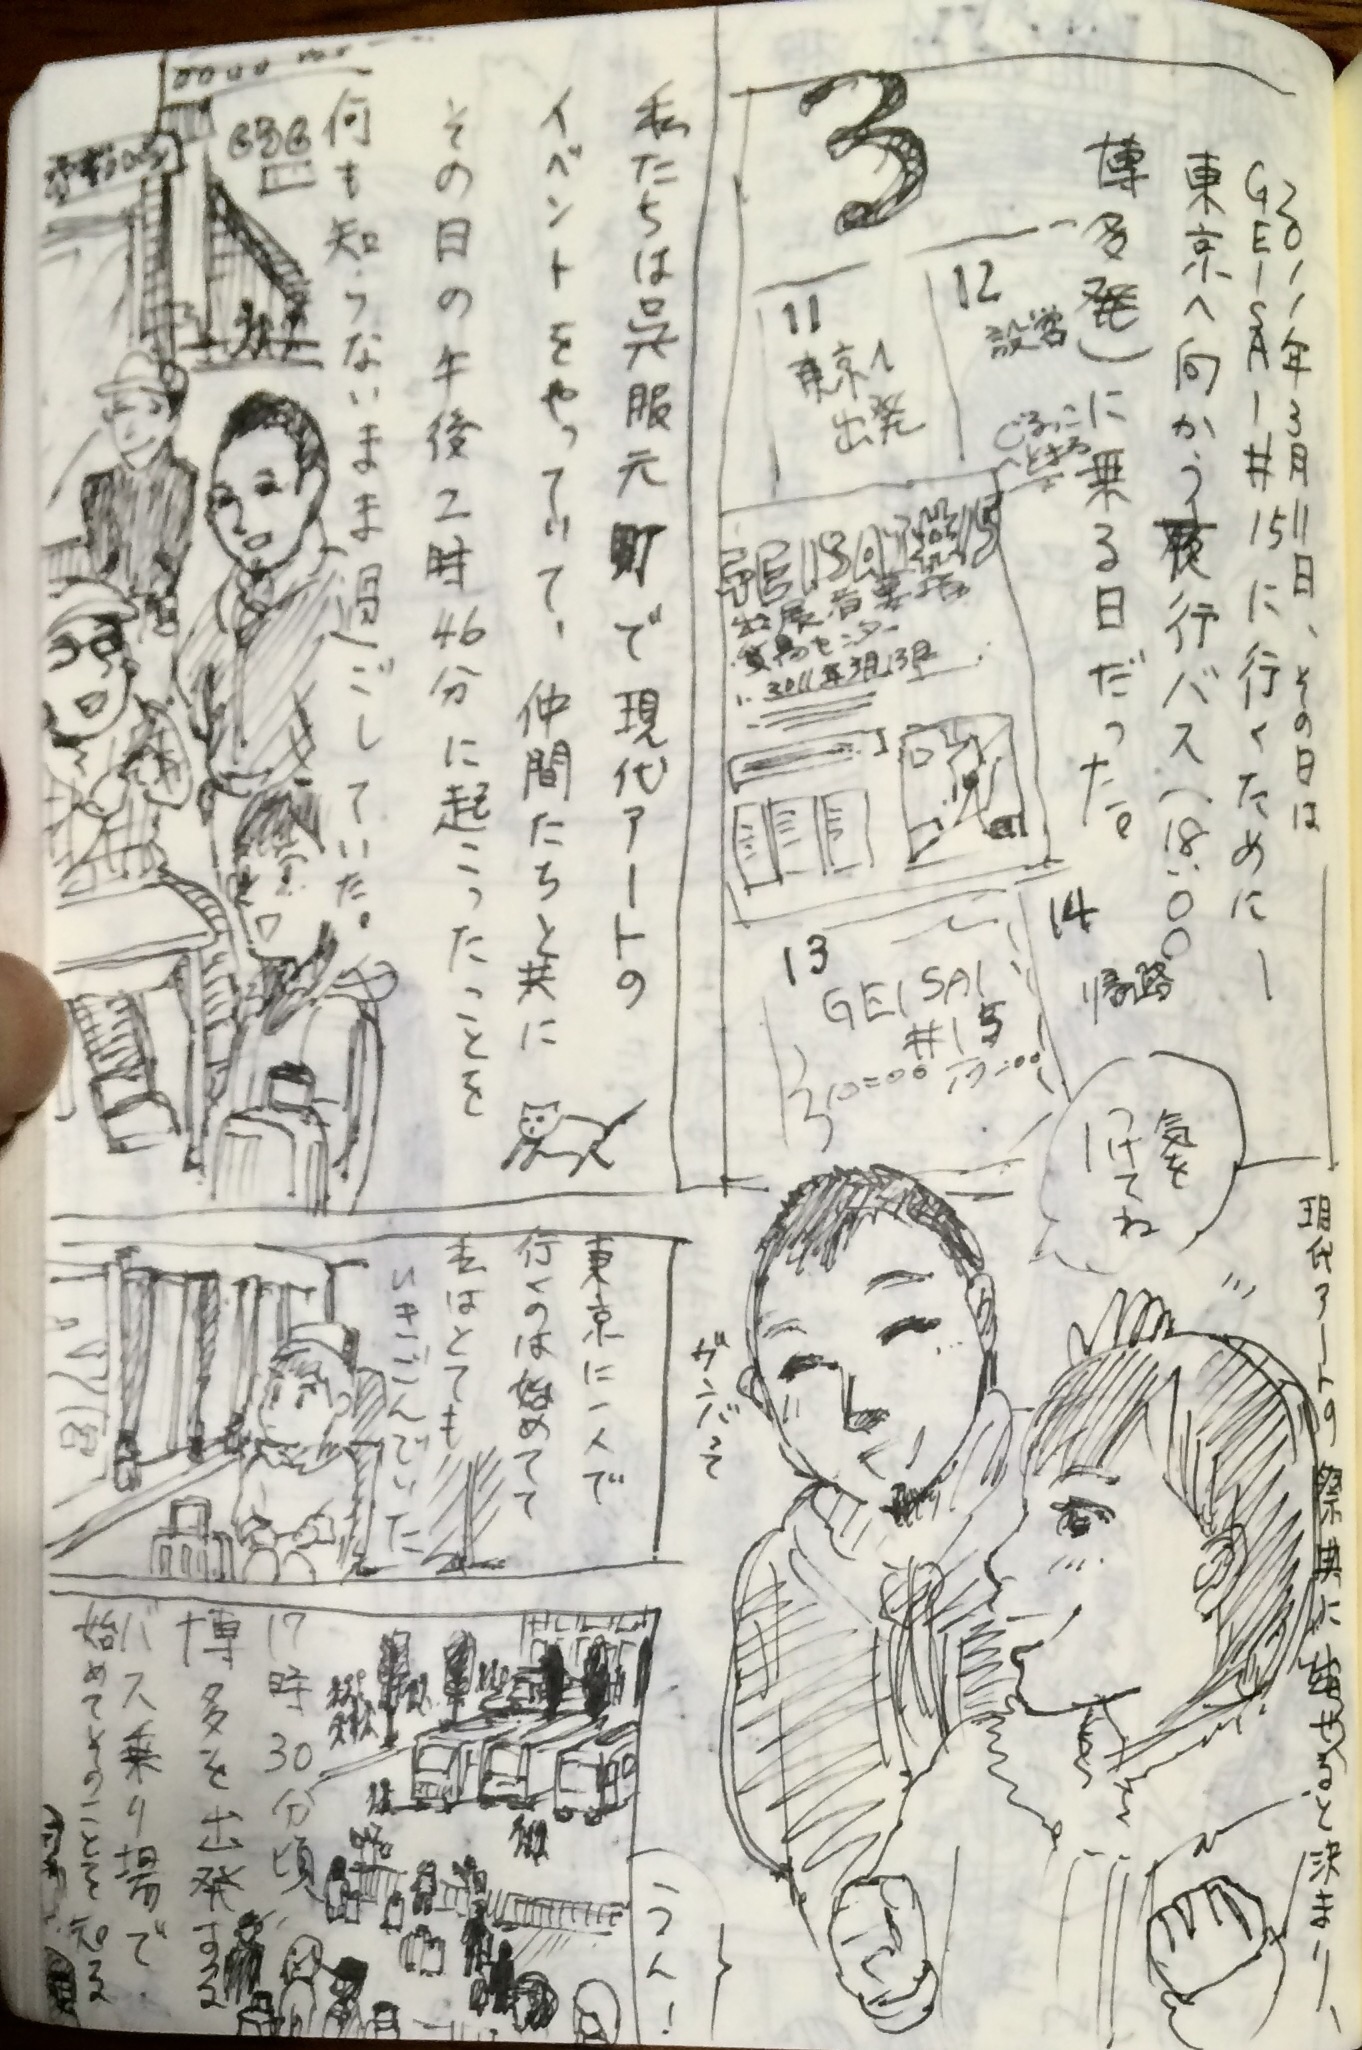 2011年3月11日、その日は
GEISAI#15に行くために
東京へ向かう夜行バス(18:00
博多発)に乗る日だった。
3
11
東京へ
出発
12
設営
GEISAI#15
2011年3月13日
13
GEISAI
#15
10:00 17:00
14
帰路
気を
つけてね
現代アートの祭典に出せると決まり、
ガンバって
うん!
私たちは呉服元町で現代アートの
イベントをやっていて、仲間たちと共に
その日の午後2時46分に起こったことを
何も知らないまま過ごしていた。
東京に一人で
行くのは始めてで
私はとても
いきごんでいた
17時30分頃
博多を出発する
バス乗り場で
始めてそのことを知る